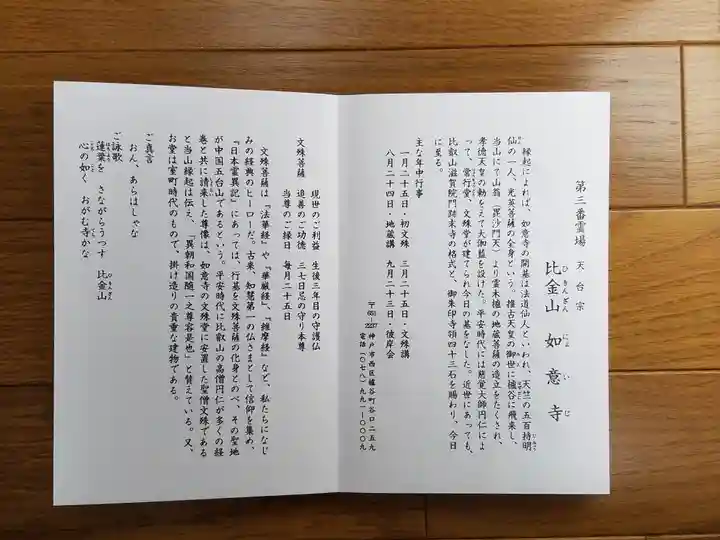 第三番霊場　天台宗
比金山　如意寺
ひきんざん　にょいじ
縁起によれば、如意寺の開基は法道仙人といわれ、天竺の五百持明
仙の一人、光英菩薩の全身という。推古天皇の御世に櫨谷に飛来し、
当山にて山翁（毘沙門天）より霊木櫨の地蔵菩薩の造立をたくされ、
孝徳天皇の勅をえて大伽藍を設けた。平安時代には慈覚大師円仁によ
って、常行堂、文殊堂が建てられ今日の基をなした。近世にあっても、
比叡山滋賀院門跡末寺の格式と、御朱印寺領四十三石を賜わり、今日
に至る。
主な年中行事
一月二十五日・初文殊　三月二十五日・文殊講
八月二十四日・地蔵講　九月二十三日・彼岸会
〒651-2237　神戸市西区櫨谷町谷口二五九
電話（〇七八）九九一ー〇〇〇九
文殊菩薩
現世のご利益　生後三年目の守護仏
追善のご功徳　三七日忌の守り本尊
当尊のご縁日　毎月二十五日
文殊菩薩は『法華経』や『華厳経』、『維摩経』など、私たちになじ
みの経典のヒーローだ。古来、知慧第一の仏さまとして信仰を集め、
『日本霊異記』にあっては、行基を文殊菩薩の化身とのべ、その聖地
が中国五台山であるという。平安時代に比叡山の高僧円仁が多くの経
巻と共に請来した尊像は、如意寺の文殊堂に安置した聖僧文殊である
と当山縁起は伝え、「異朝和国随一之尊容是也」と賛えている。又、
お堂は室町時代のもので、掛け造りの貴重な建物である。
ご真言
おん、あらはしゃな
ご詠歌
蓮葉を　さながらうつす　比金山
心の如く　おがむ寺かな